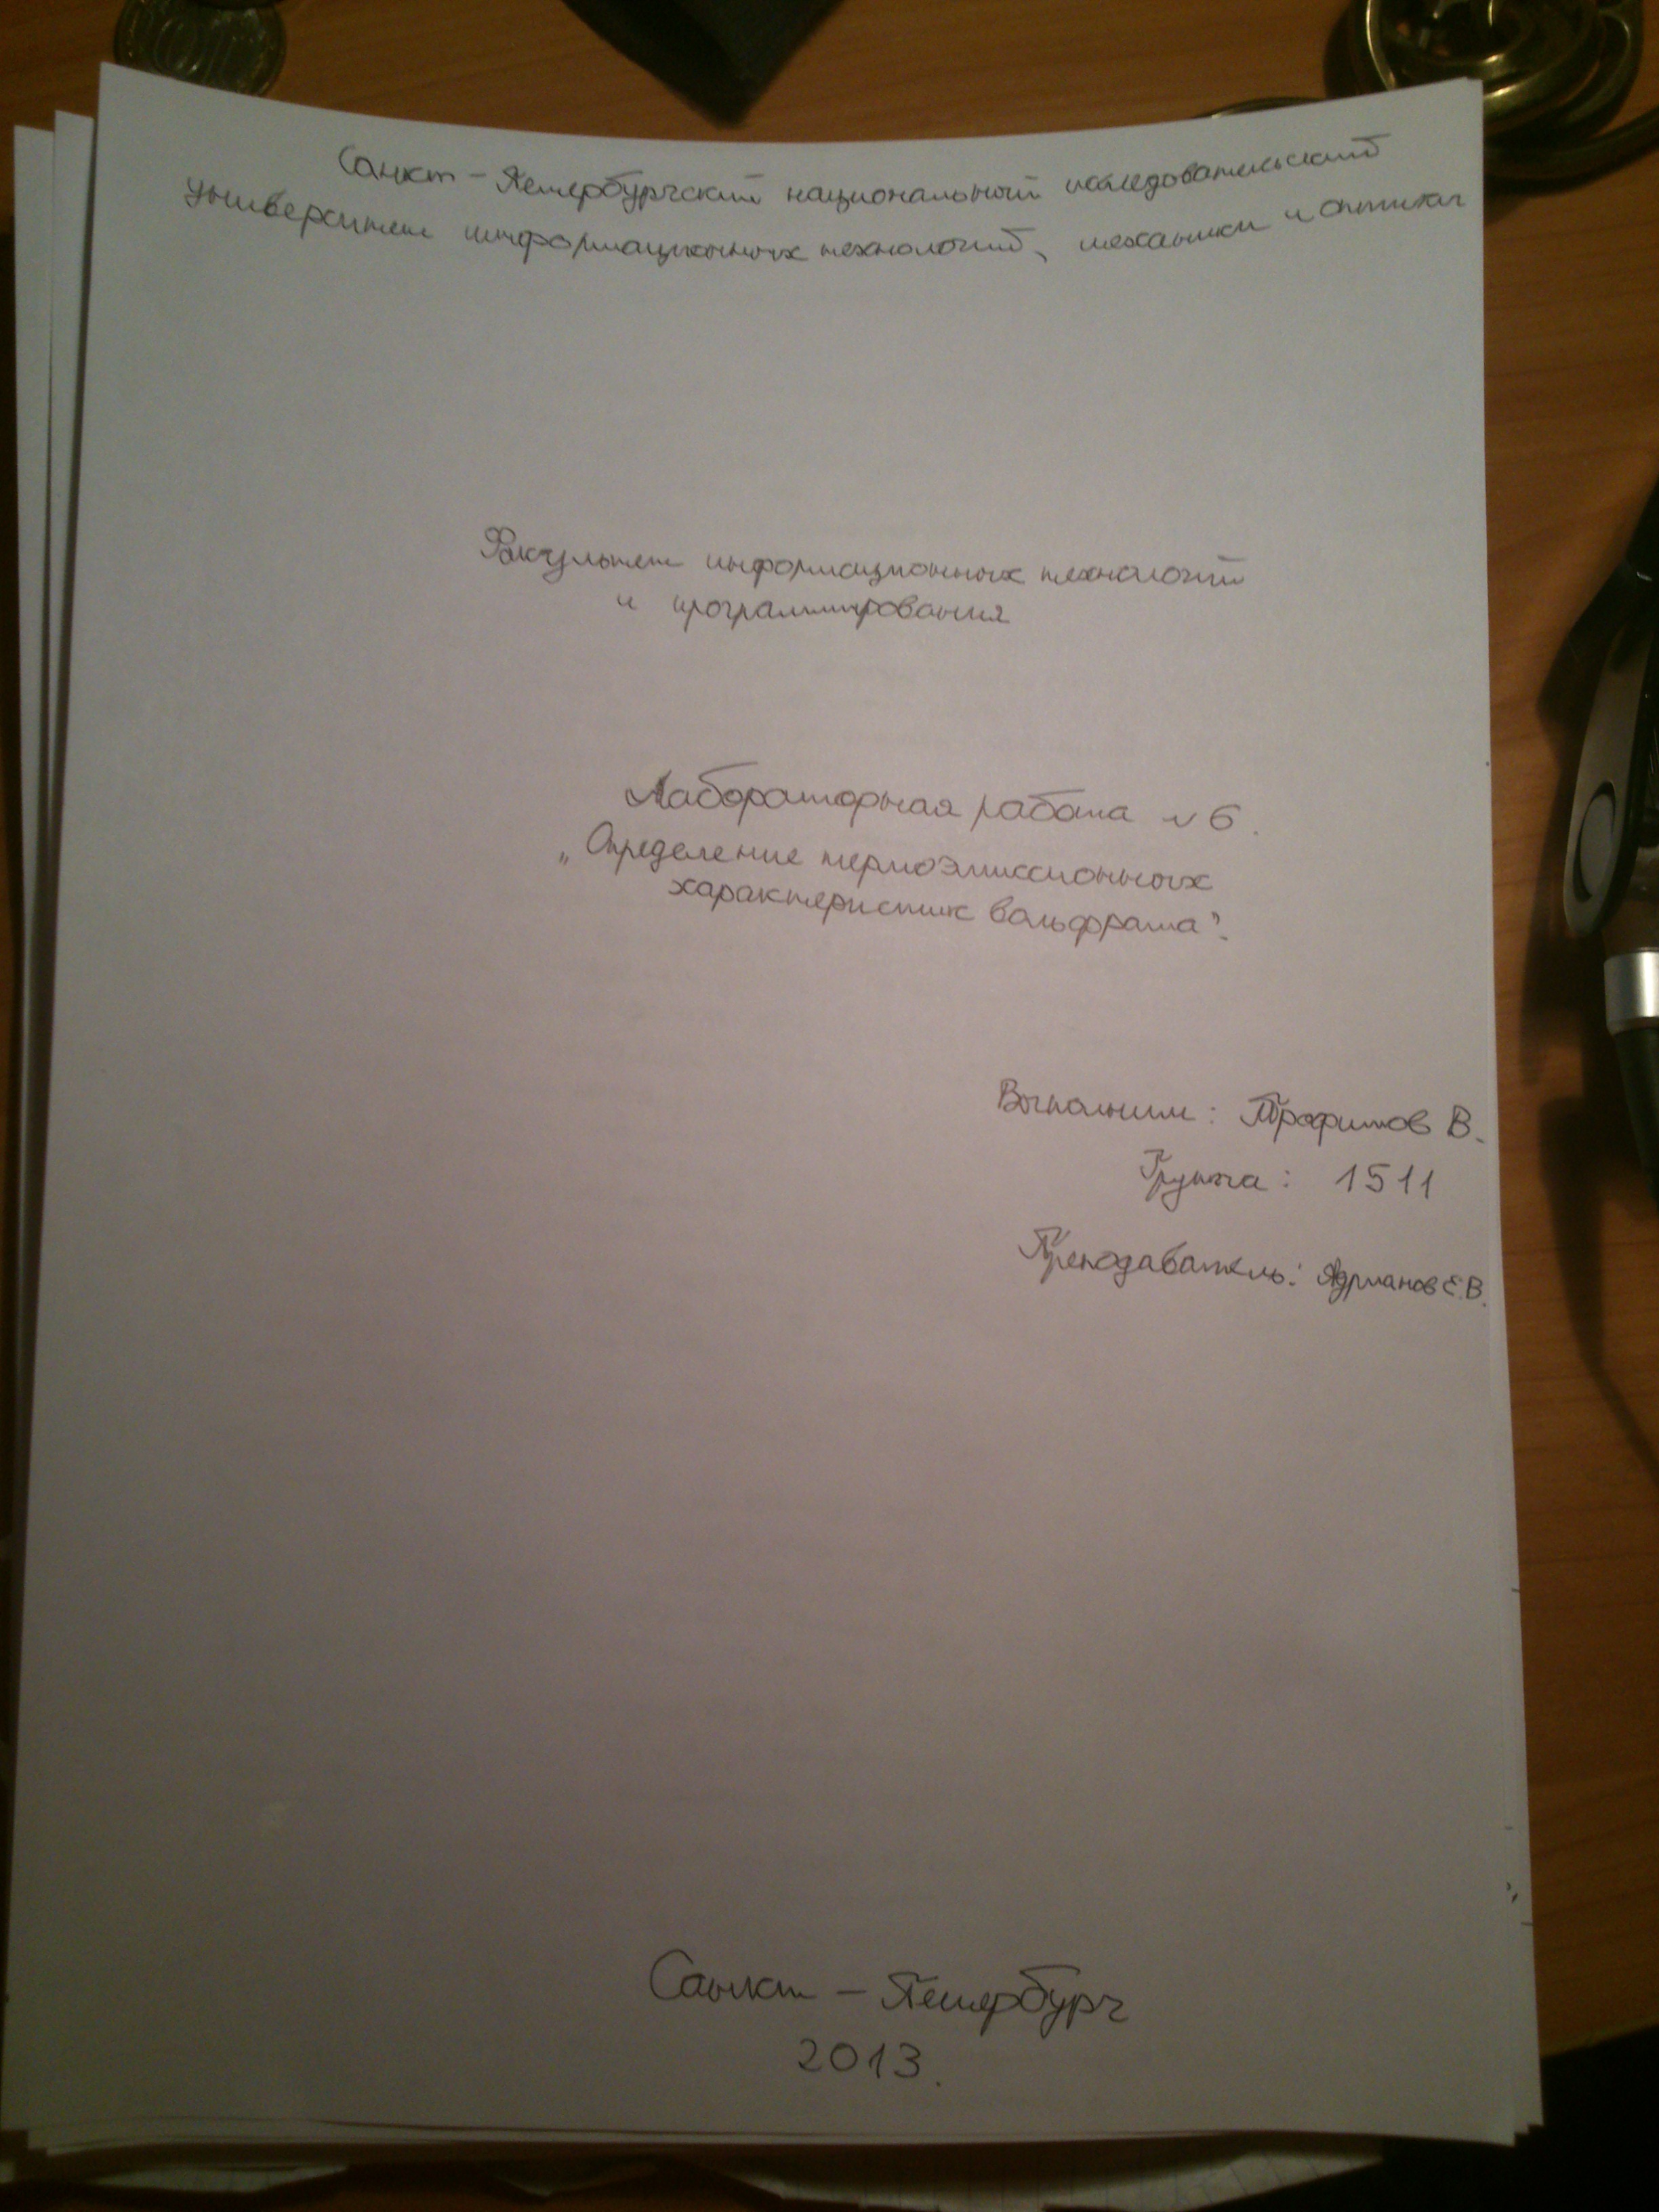 Санкт-Петербургский национальный исследовательский
университет информационных технологий, механики и оптики
Факультет информационных технологий
и программирования
Лабораторная работа №6.
„Определение термоэмиссионных
характеристик вольфрама".
Выполнил: Трофимов В.
Группа: 1511
Преподаватель: Адрианов Е.В.
Санкт-Петербург
2013.